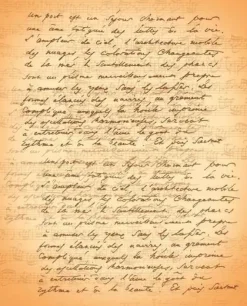 un port est un séjour charmant pour
une âme fatiguée des luttes de la vie.
l'ampleur du ciel, l'architecture mobile
des nuages, les colorations changeantes
de la mer, le scintillement des phares
sont un prisme merveilleusement propre
à amuser les yeux sans les lasser. Les
formes élancées des navires, au gréement
compliqué, auxquels la houle imprime
des oscillations harmonieuses, servent
à entretenir dans l'âme le goût du
rythme et de la beauté. Et puis, surtout
un port est un séjour charmant pour
une âme fatiguée des luttes de la vie.
l'ampleur du ciel, l'architecture mobile
des nuages, les colorations changeantes
de la mer, le scintillement des phares
sont un prisme merveilleusement propre
à amuser les yeux sans les lasser. Les
formes élancées des navires, au gréement
compliqué, auxquels la houle imprime
des oscillations harmonieuses, servent
à entretenir dans l'âme le goût du
rythme et de la beauté. Et puis, surtout